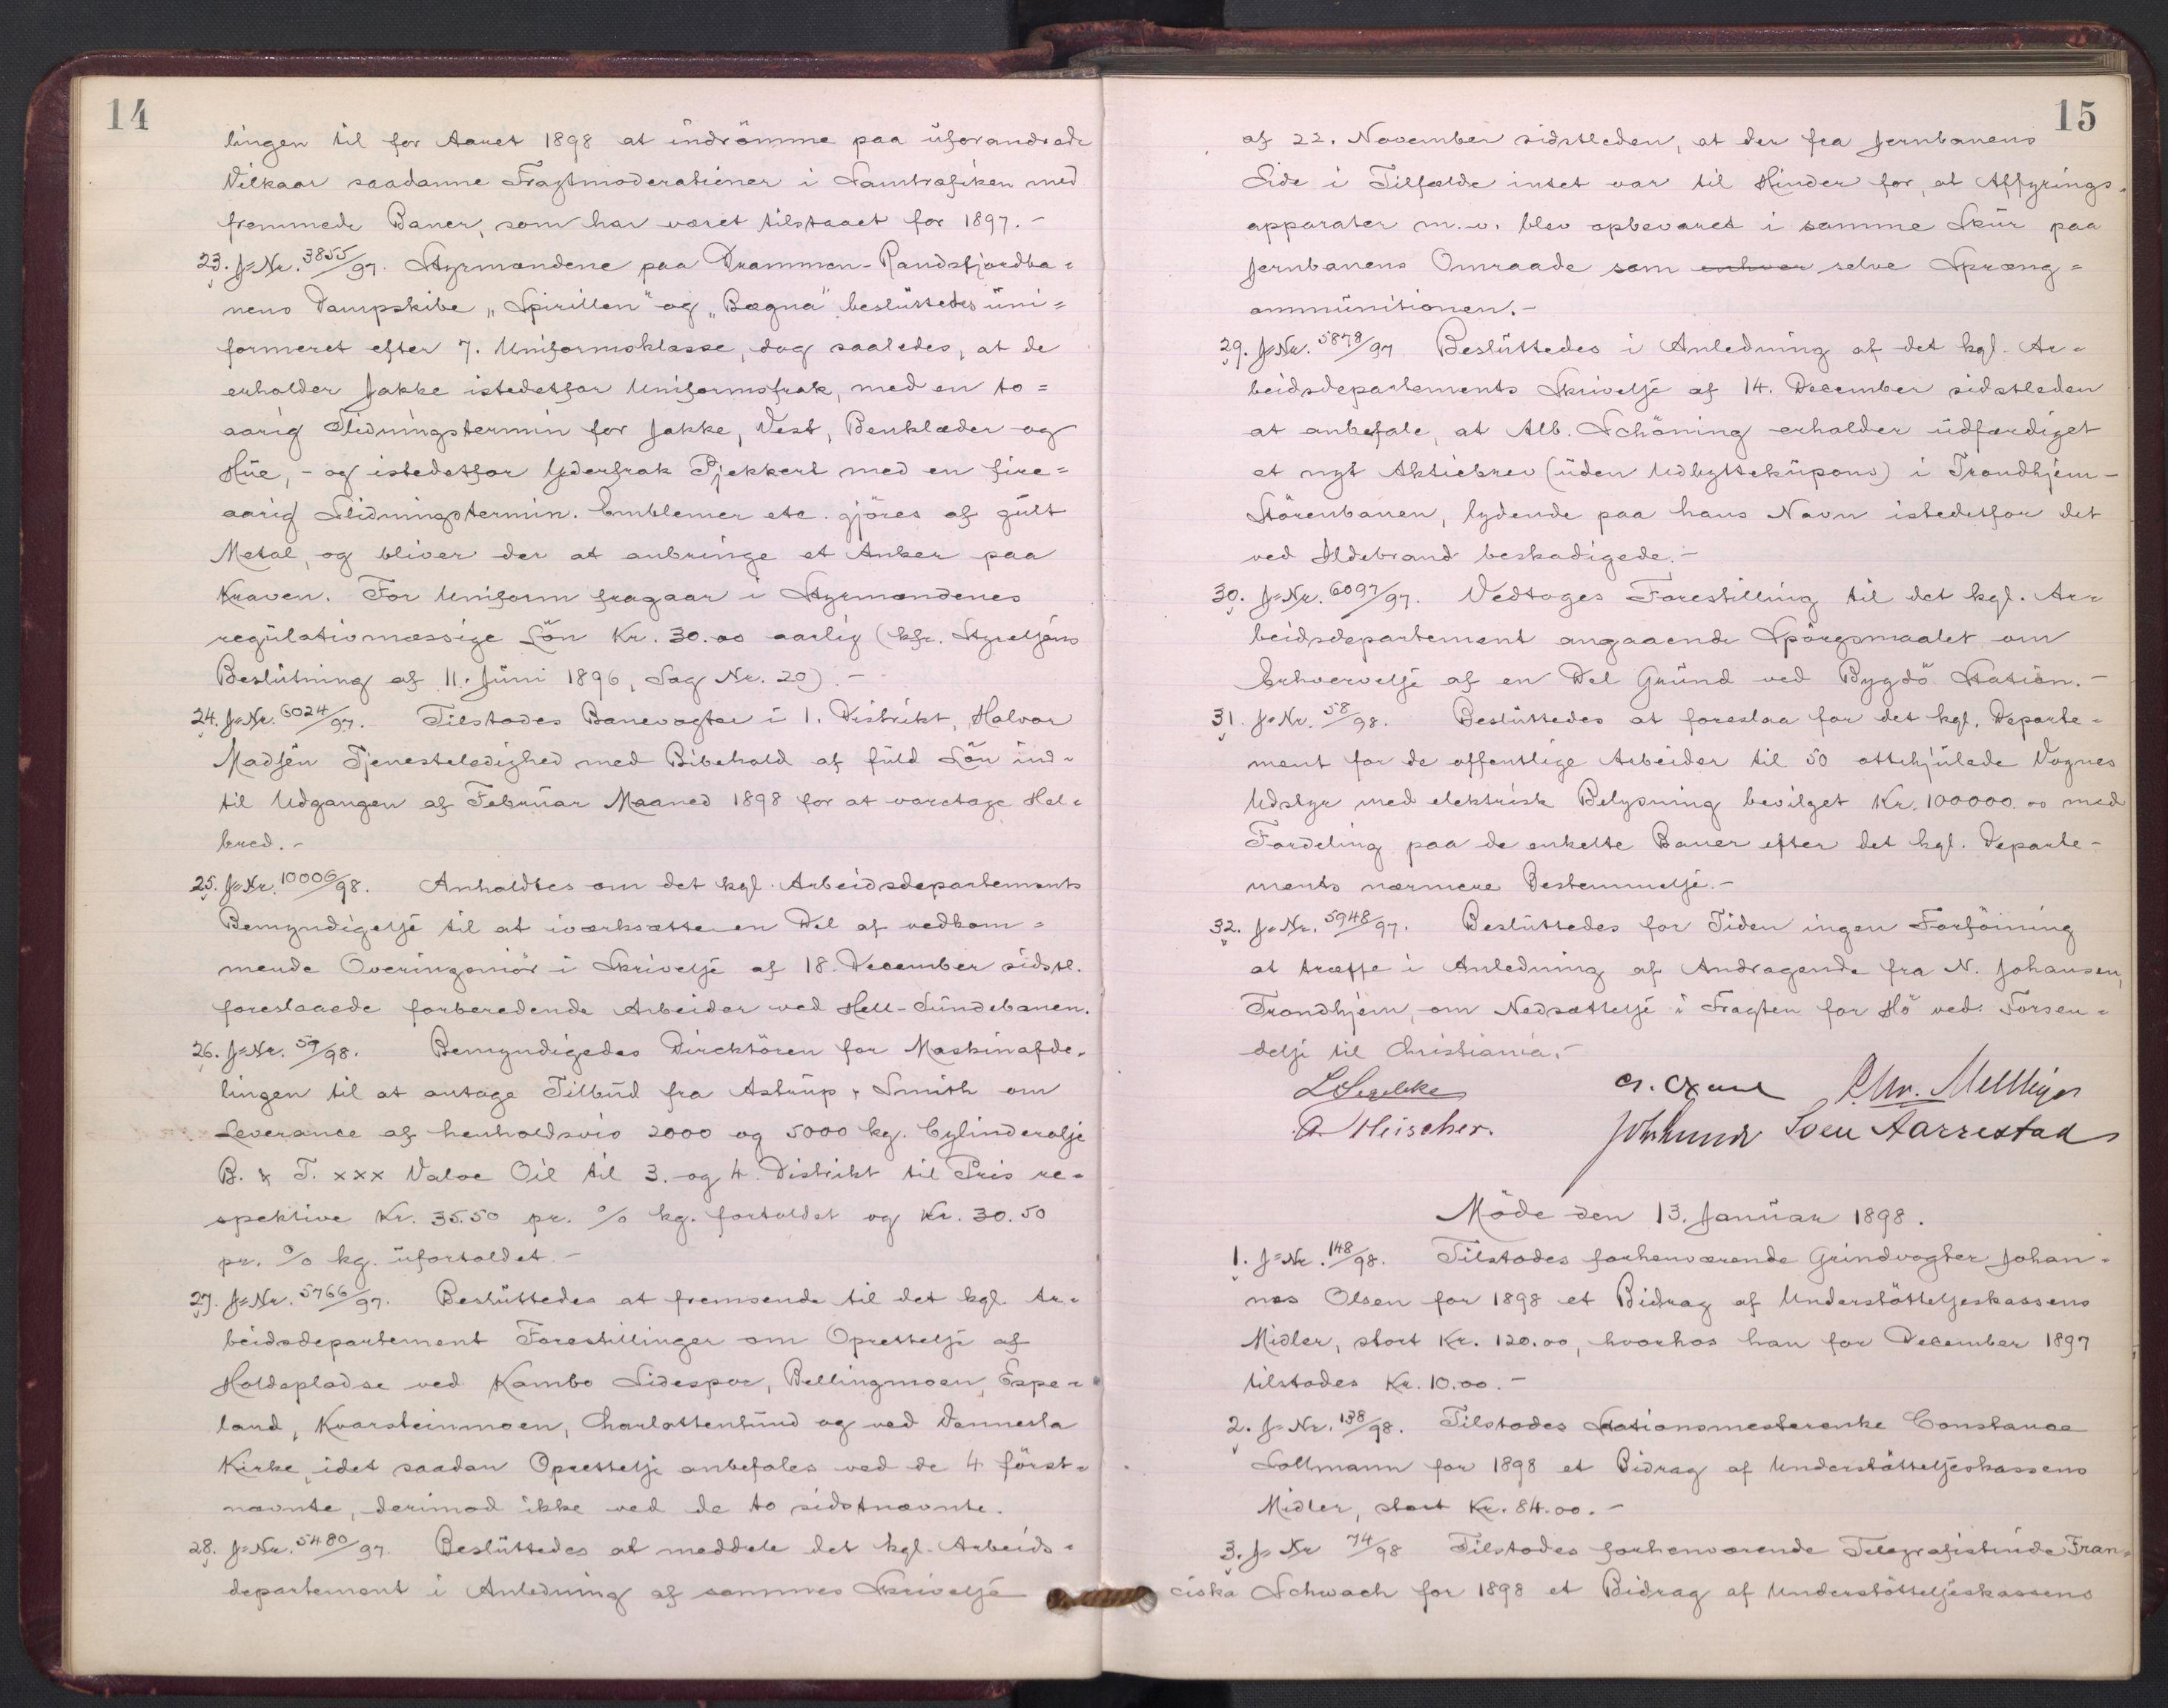 14
lingen til for Aaret 1898 at indrömme paa uforandrede
Vilkaar saadanne Fragtmoderationer i Samtrafiken med
fremmede Baner, som har været tilstaaet for 1897.-
23. J=Nr. 3855/97. Styrmændene paa Drammen-Randsfjordba=
nens Dampskibe „Spirillen" og „Bægna" besluttedes uni=
formeret efter 7. Uniformsklasse, dog saaledes, at de
erholder Jakke istedetfor Uniformsfrak, med en to=
aarig Slidningstermin for Jakke, Vest, Benklæder og
Hue, - og istedetfor Yderfrak Pjekkert med en fire=
aarig Slidningstermin. Emblemer etc. gjöres af gult
Metal, og bliver der at anbringe et Anker paa
Kraven. For Uniform fragaar i Styrmændenes
regulativmæssige Lön Kr. 30.00 aarlig (kfr. Styrelsens
Beslutning af 11. Juni 1896, Sag Nr. 20).-
24. J=Nr. 6024/97. Tilstodes Banevogter i 1. Distrikt, Halvor
Madsen Tjenesteledighed med Bibehold af fuld Lön ind=
til Udgangen af Februar Maaned 1898 for at varetage Hel=
bred.-
25. J=Nr. 10006/98. Anholdtes om det kgl. Arbeidsdepartements
Bemyndigelse til at iværksætte en Del af vedkom=
mende Overingeniör i Skrivelse af 18. December sidstl.
foreslaaede forberedende Arbeider ved Hell-Sundebanen.
26. J=Nr. 59/98. Bemyndigedes Direktören for Maskinafde=
lingen til at antage Tilbud fra Astrup & Smith om
Leverance af henholdsvis 2000 og 5000 kg. Cylinderolje
B. & T. xxx Valve Oil til 3. og 4. Distrikt til Pris re=
spektive Kr. 35.50 pr. % kg. fortoldet og Kr. 30.50
pr. % kg. ufortoldet.-
27. J=Nr. 5766/97. Besluttedes at fremsende til det kgl. Ar=
beidsdepartement Forestillinger om Oprettelse af
Holdepladse ved Kambo Sidespor, Bellingmoen, Espe=
land, Kvarsteinmoen, Charlottenlund og ved Vennesla
Kirke, idet saadan Oprettelse anbefales ved de 4 först=
nævnte, derimod ikke ved de to sidstnævnte.
28. J=Nr. 5480/97. Besluttedes at meddele det kgl. Arbeids=
departement i Anledning af sammes Skrivelse
15
af 22. November sidstleden, at der fra Jernbanens
Side i Tilfælde intet var til Hinder for, at Affyrings=
apparater m.v. blev opbevaret i samme Skur paa
Jernbanens Omraade som enhver selve Spræng=
ammunitionen.-
29. J=Nr. 5878/97 Besluttedes i Anledning af det kgl. Ar=
beidsdepartements Skrivelse af 14. December sidstleden
at anbefale, at Alb. Schöning erholder udfærdiget
et nyt Aktiebrev (uden Udbyttekupons) i Trondhjem-
Störenbanen, lydende paa hans Navn istedetfor det
ved Ildebrand beskadigede.-
30. J=Nr. 6097/97. Vedtoges Forestilling til det kgl. Ar=
beidsdepartement angaaende Spörgsmaalet om
Erhvervelse af en Del Grund ved Bygdö Station.-
31. J=Nr. 58/98. Besluttedes at foreslaa for det kgl. Departe=
ment for de offentlige Arbeider til 50 ottehjulede Vognes
Udstyr med elektrisk Belysning bevilget Kr. 100000.00 med
Fordeling paa de enkelte Baner efter det kgl. Departe-
ments nærmere Bestemmelse.-
32. J=Nr. 5948/97. Besluttedes for Tiden ingen Forföining
at træffe i Anledning af Andragende fra N. Johansen,
Trondhjem, om Nedsættelse i Fragten for Hö ved Forsen=
delse til Christiania.-
Sven Aarrestad
Möde den 13. Januar 1898.
1. J=Nr. 148/98. Tilstodes forhenværende Grindvogter Johan=
nes Olsen for 1898 et Bidrag af Understöttelseskassens
Midler, stort Kr. 120.00, hvorhos han for December 1897
tilstodes Kr. 10.00.-
2. J=Nr. 138/98. Tilstodes Stationsmesterenke Constance
Sollmann for 1898 et Bidrag af Understöttelseskassens
Midler, stort Kr. 84.00.-
3. J=Nr 74/98 Tilstodes forhenværende Telegrafistinde Fran=
ciska Schwach for 1898 et Bidrag af Understöttelseskassens